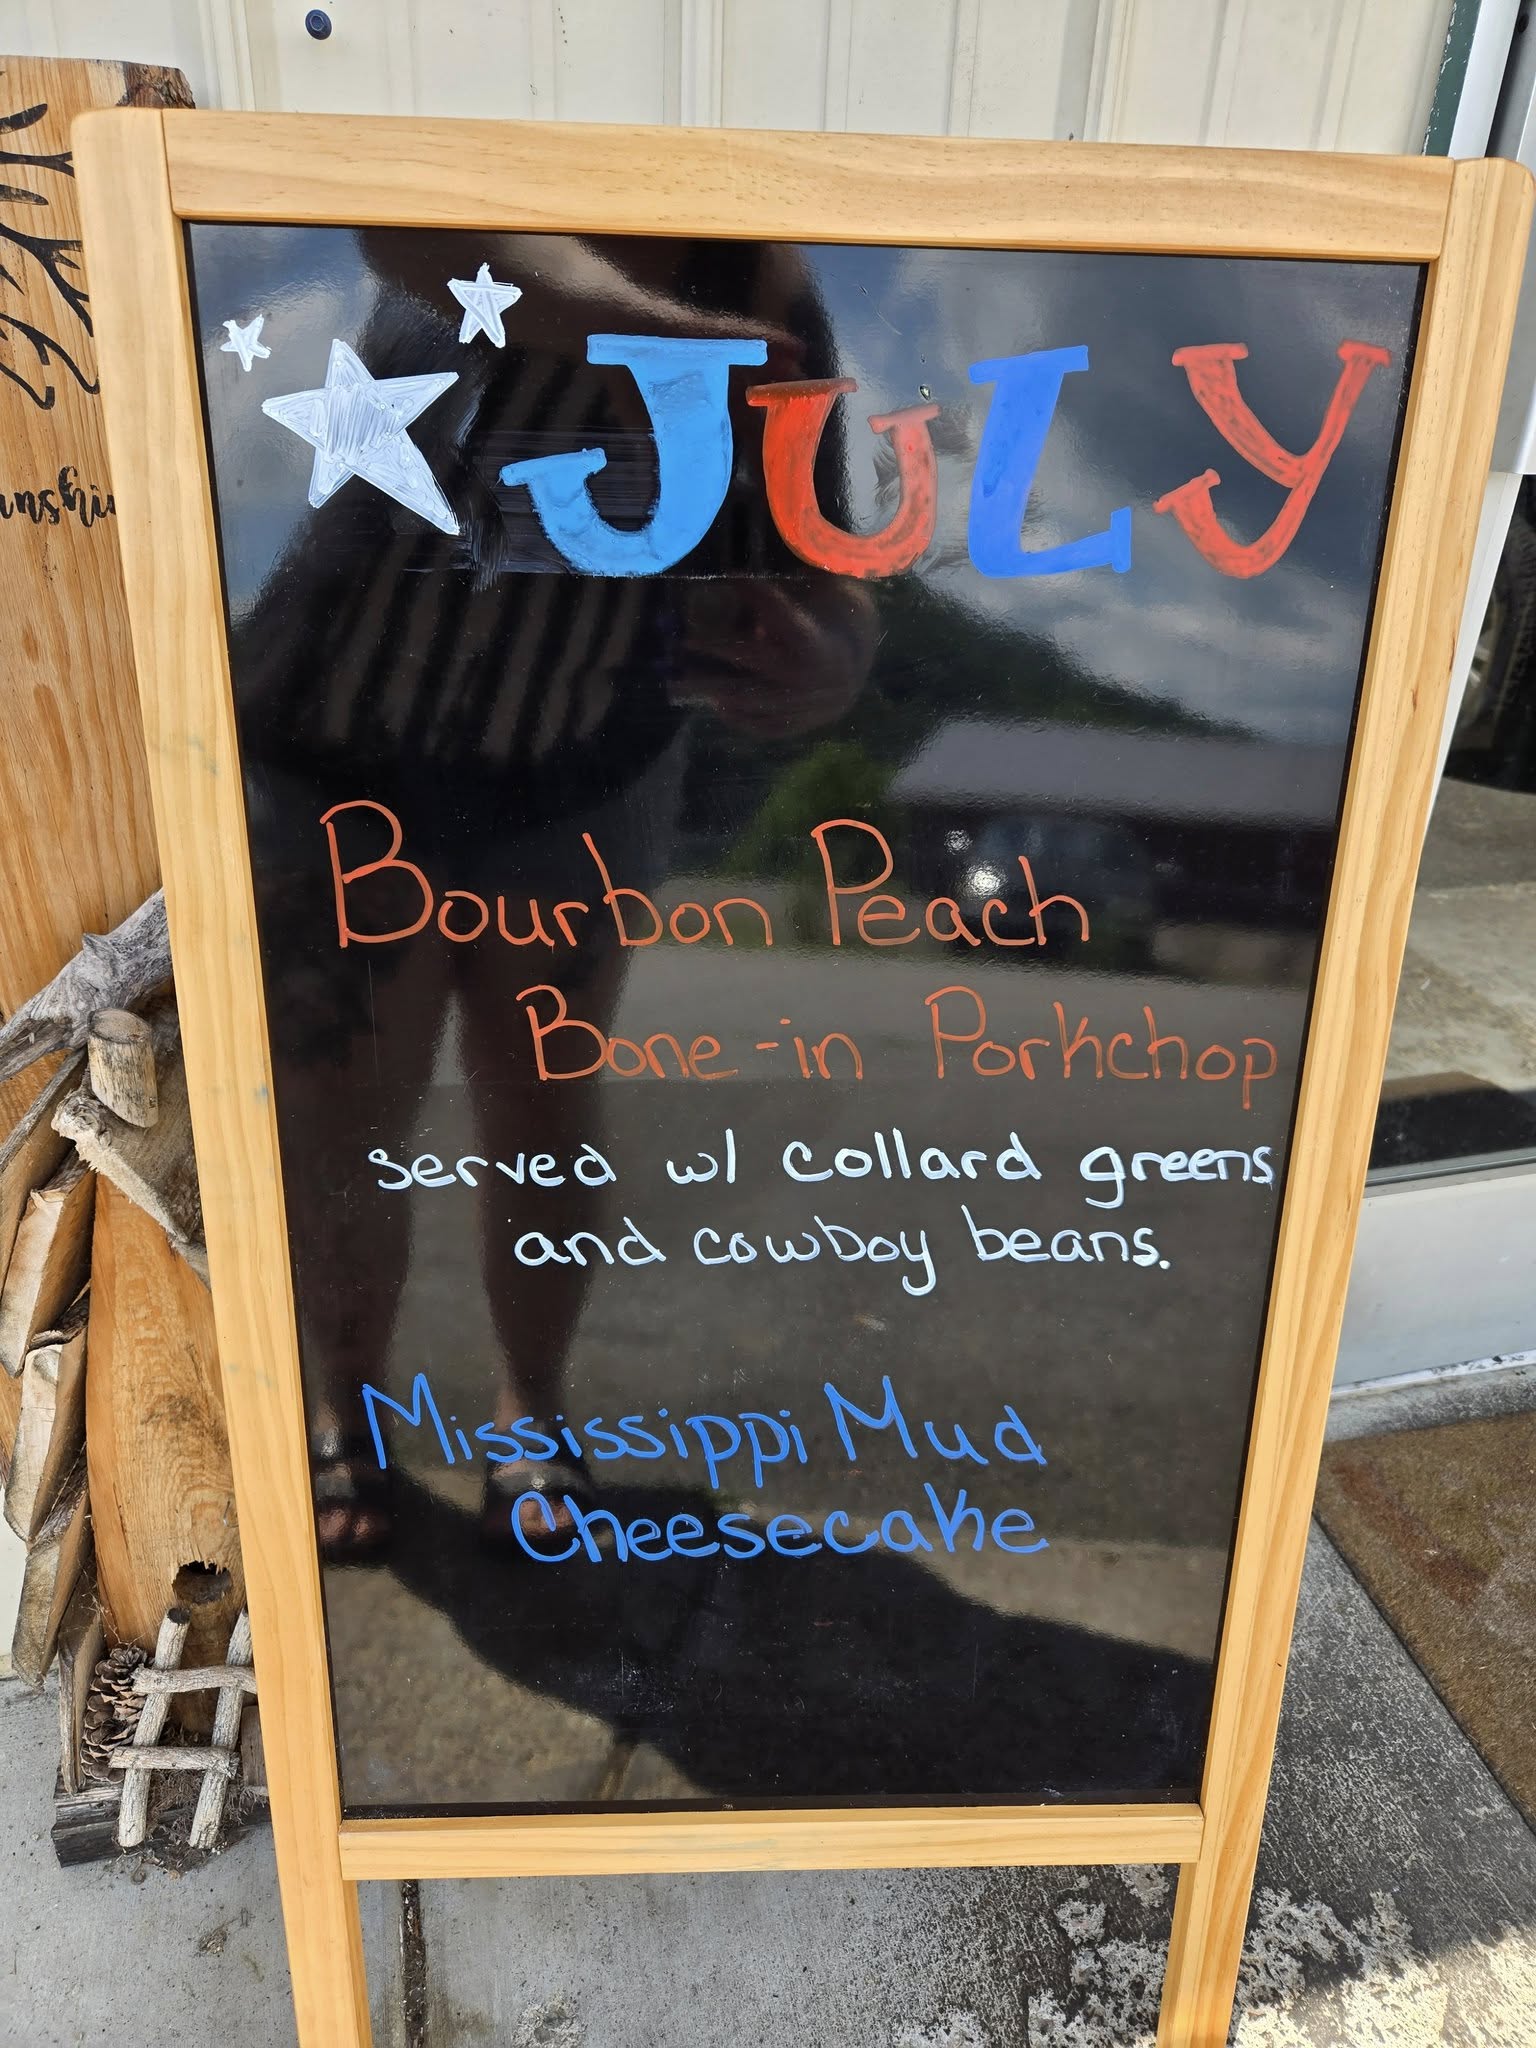 JULY
Bourbon Peach
Bone-in Porkchop
served w/ collard greens
and cowboy beans.
Mississippi Mud
Cheesecake